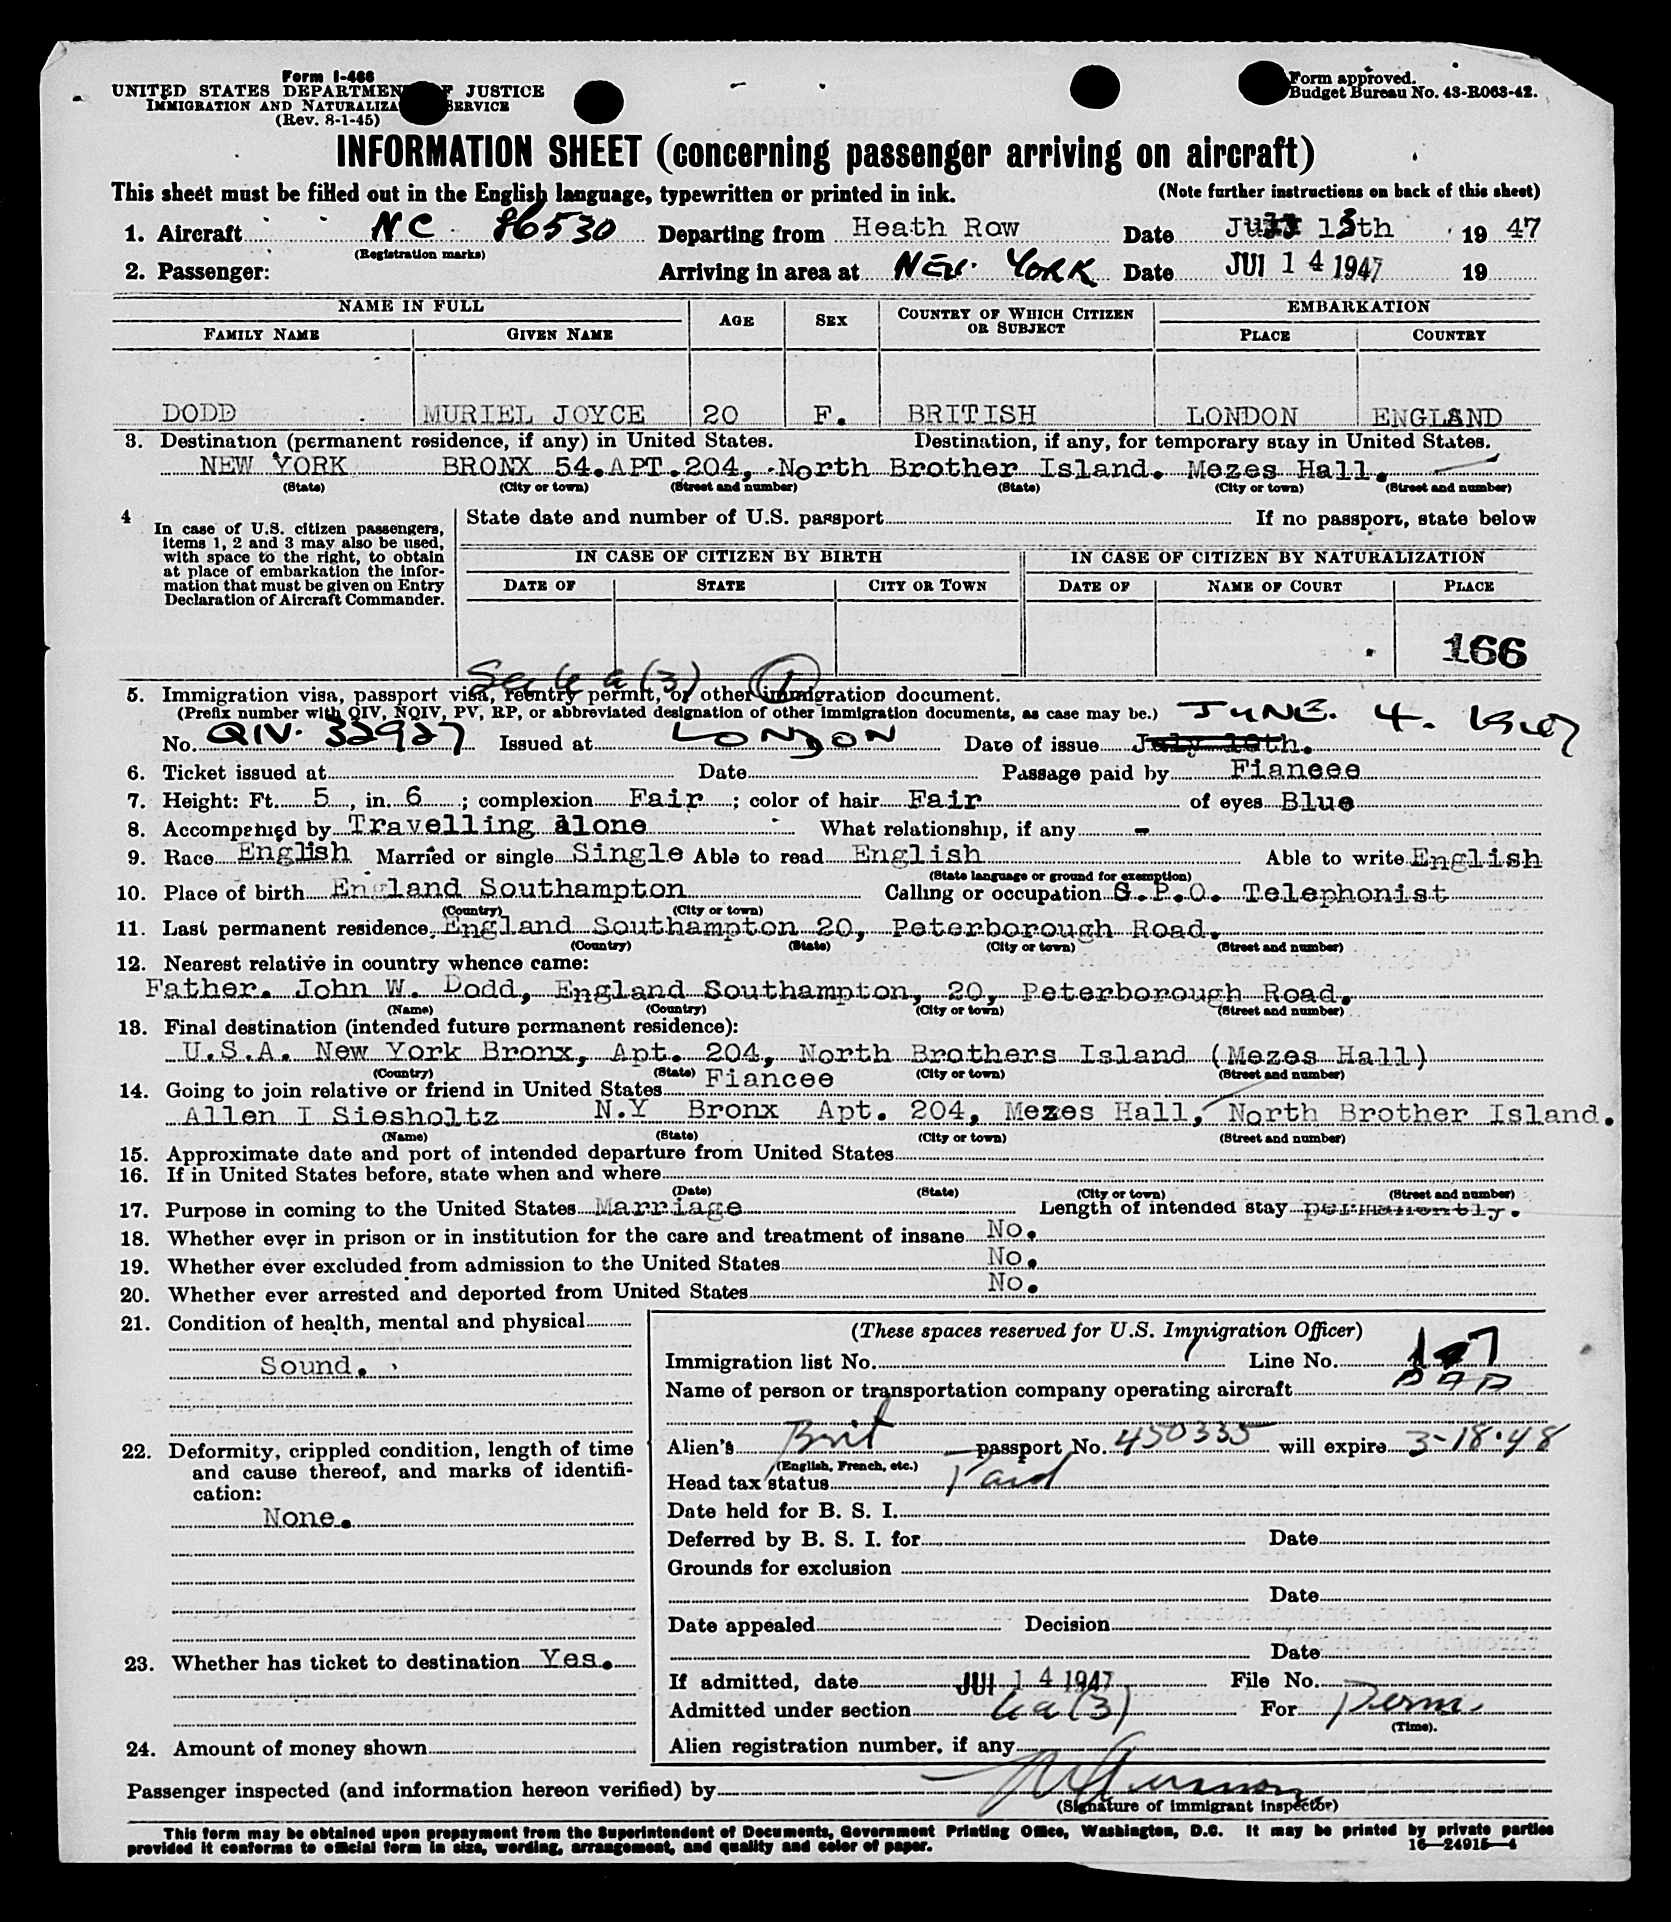 Form I-466
UNITED STATES DEPARTMENT OF JUSTICE
IMMIGRATION AND NATURALIZATION SERVICE
(Rev. 8-1-45)
Form approved.
Budget Bureau No. 43-R063-42.
INFORMATION SHEET (concerning passenger arriving on aircraft)
This sheet must be filled out in the English language, typewritten or printed in ink. (Note further instructions on back of this sheet)
1. Aircraft NC 86530 Departing from Heath Row Date 13th 19 47
(Registration marks)
2. Passenger: Arriving in area at NEW YORK Date JUL 14 1947 19
NAME IN FULL AGE SEX COUNTRY OF WHICH CITIZEN OR SUBJECT EMBARKATION
FAMILY NAME GIVEN NAME PLACE COUNTRY
DODD MURIEL JOYCE 20 F. BRITISH LONDON ENGLAND
3. Destination (permanent residence, if any) in United States. Destination, if any, for temporary stay in United States.
NEW YORK BRONX 54. APT. 204, North Brother Island. Mezes Hall.
(State) (City or town) (Street and number) (State) (City or town) (Street and number)
4 In case of U.S. citizen passengers, items 1, 2 and 3 may also be used, with space to the right, to obtain at place of embarkation the information that must be given on Entry Declaration of Aircraft Commander.
State date and number of U.S. passport If no passport, state below
IN CASE OF CITIZEN BY BIRTH IN CASE OF CITIZEN BY NATURALIZATION
DATE OF STATE CITY OR TOWN DATE OF NAME OF COURT PLACE
166
Sec 6 a (3) 1
5. Immigration visa, passport visa, reentry permit, or other immigration document.
(Prefix number with QIV, NQIV, PV, RP, or abbreviated designation of other immigration documents, as case may be.) JUNE. 4. 1947
No. QIV. 32927 Issued at LONDON Date of issue July 10th.
6. Ticket issued at Date Passage paid by Fiancee
7. Height: Ft. 5, in. 6; complexion Fair; color of hair Fair of eyes Blue
8. Accompanied by Travelling alone What relationship, if any -
9. Race English Married or single Single Able to read English Able to write English
(State language or ground for exemption)
10. Place of birth England Southampton Calling or occupation G.P.O. Telephonist
(Country) (City or town)
11. Last permanent residence England Southampton 20, Peterborough Road.
(Country) (State) (City or town) (Street and number)
12. Nearest relative in country whence came:
Father. John W. Dodd, England Southampton, 20, Peterborough Road.
(Name) (Country) (City or town) (Street and number)
13. Final destination (intended future permanent residence):
U.S.A. New York Bronx, Apt. 204, North Brothers Island (Mezes Hall)
(Country) (State) (City or town) (Street and number)
14. Going to join relative or friend in United States Fiancee
Allen I Siesholtz N.Y Bronx Apt. 204, Mezes Hall, North Brother Island.
(Name) (State) (City or town) (Street and number)
15. Approximate date and port of intended departure from United States
16. If in United States before, state when and where
(Date) (State) (City or town) (Street and number)
17. Purpose in coming to the United States Marriage Length of intended stay permanently.
18. Whether ever in prison or in institution for the care and treatment of insane No.
19. Whether ever excluded from admission to the United States No.
20. Whether ever arrested and deported from United States No.
21. Condition of health, mental and physical
Sound.
22. Deformity, crippled condition, length of time and cause thereof, and marks of identification:
None.
23. Whether has ticket to destination Yes.
24. Amount of money shown
(These spaces reserved for U.S. Immigration Officer)
Immigration list No. Line No. 7
Name of person or transportation company operating aircraft PAA
Alien's Brit passport No. 450335 will expire 3-18-48
(English, French, etc.)
Head tax status Paid
Date held for B. S. I.
Deferred by B. S. I. for Date
Grounds for exclusion
Date
Date appealed Decision
Date
If admitted, date JUL 14 1947 File No.
Admitted under section 6a(3) For Perm.
(Time).
Alien registration number, if any
Passenger inspected (and information hereon verified) by
(Signature of immigrant inspector)
This form may be obtained upon prepayment from the Superintendent of Documents, Government Printing Office, Washington, D.C. It may be printed by private parties
provided it conforms to official form in size, wording, arrangement, and quality and color of paper. 16—24915—4